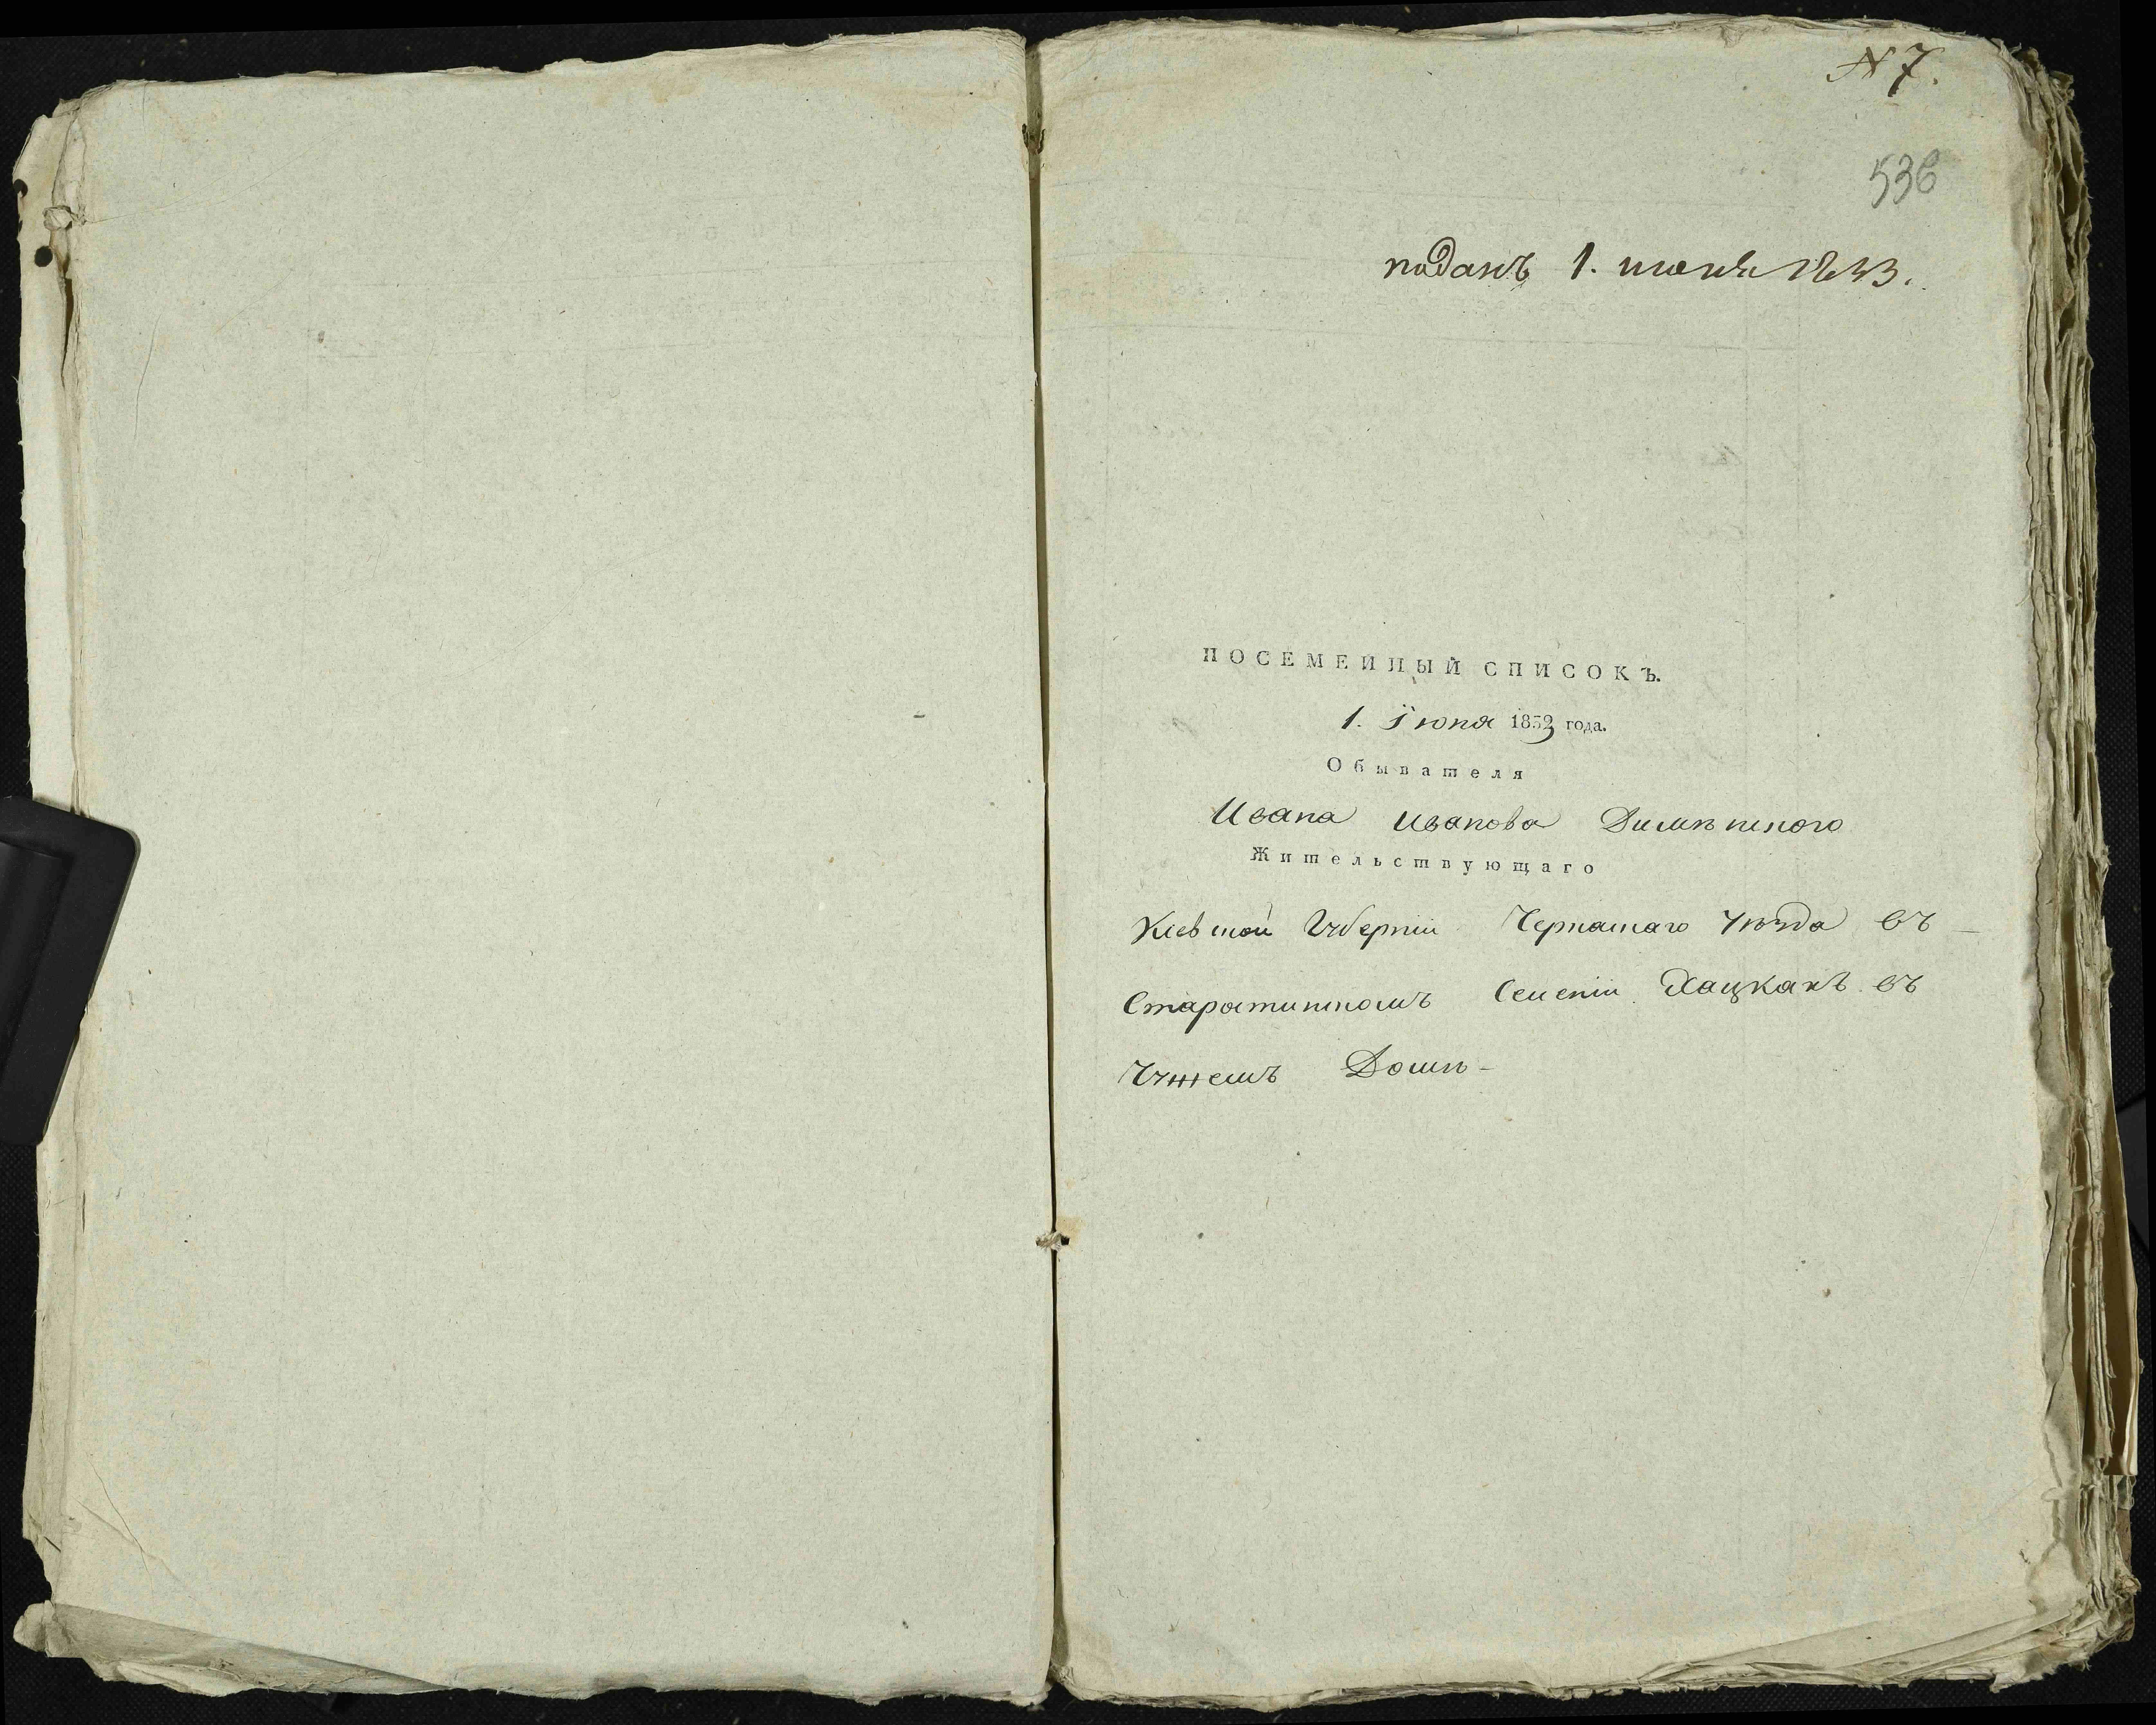 N 7.
536
поданъ 1. июня 1833.
ПОСЕМЕЙНЫЙ СПИСОКЪ.
1. Їюня 1833 года.
Обывателя
Ивана Иванова
Жительствующаго
Кіевской Губерніи Черкаскаго Уѣзда въ
Старостинскомъ Селеніи Хацкахъ въ
Чужемъ Домѣ -